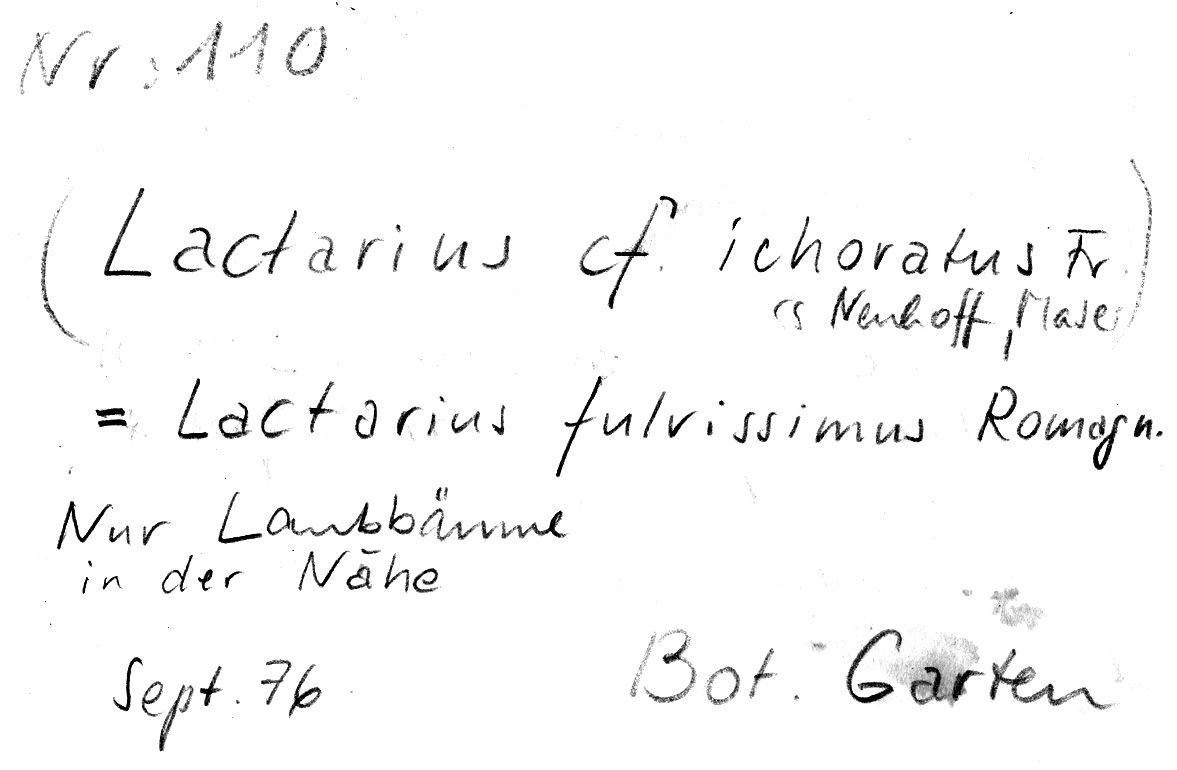 Nr. 110
(Lactarius cf. ichoratus Fr.
ss Neuhoff, Moser)
= Lactarius fulvissimus Romagn.
Nur Laubbäume
in der Nähe
Sept. 76
Bot. Garten